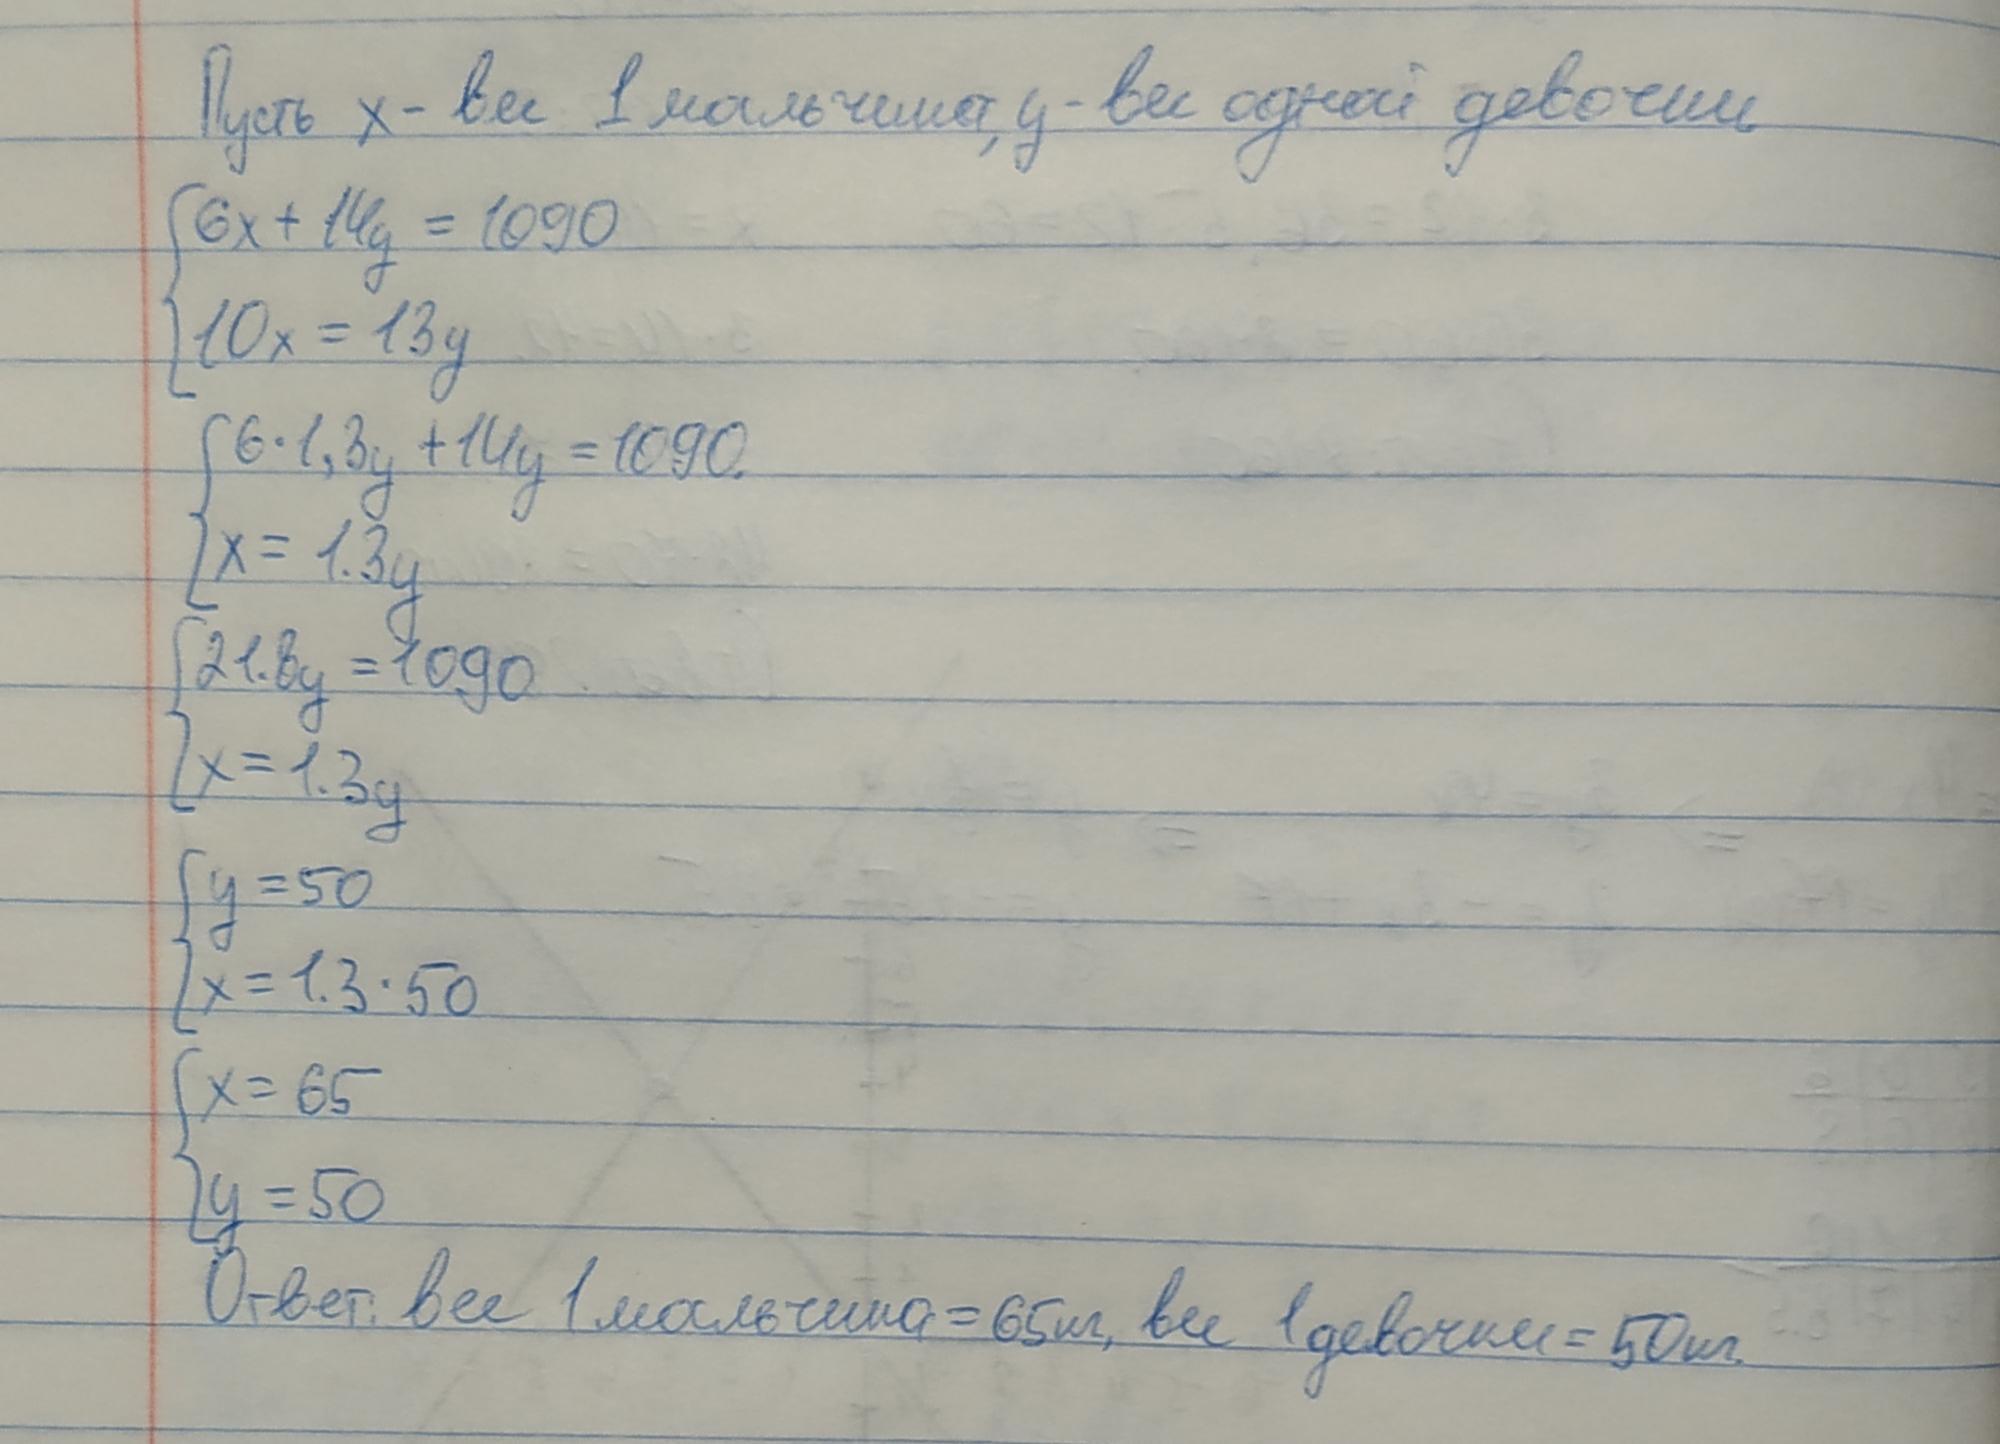 Пусть x - вес 1 мальчика, y - вес одной девочки
6x + 14y = 1090
10x = 13y
6·1,3y + 14y = 1090.
x = 1.3y
21.8y = 1090
x = 1.3y
y = 50
x = 1.3·50
x = 65
y = 50
Ответ: вес 1 мальчика = 65кг, вес 1 девочки = 50кг.